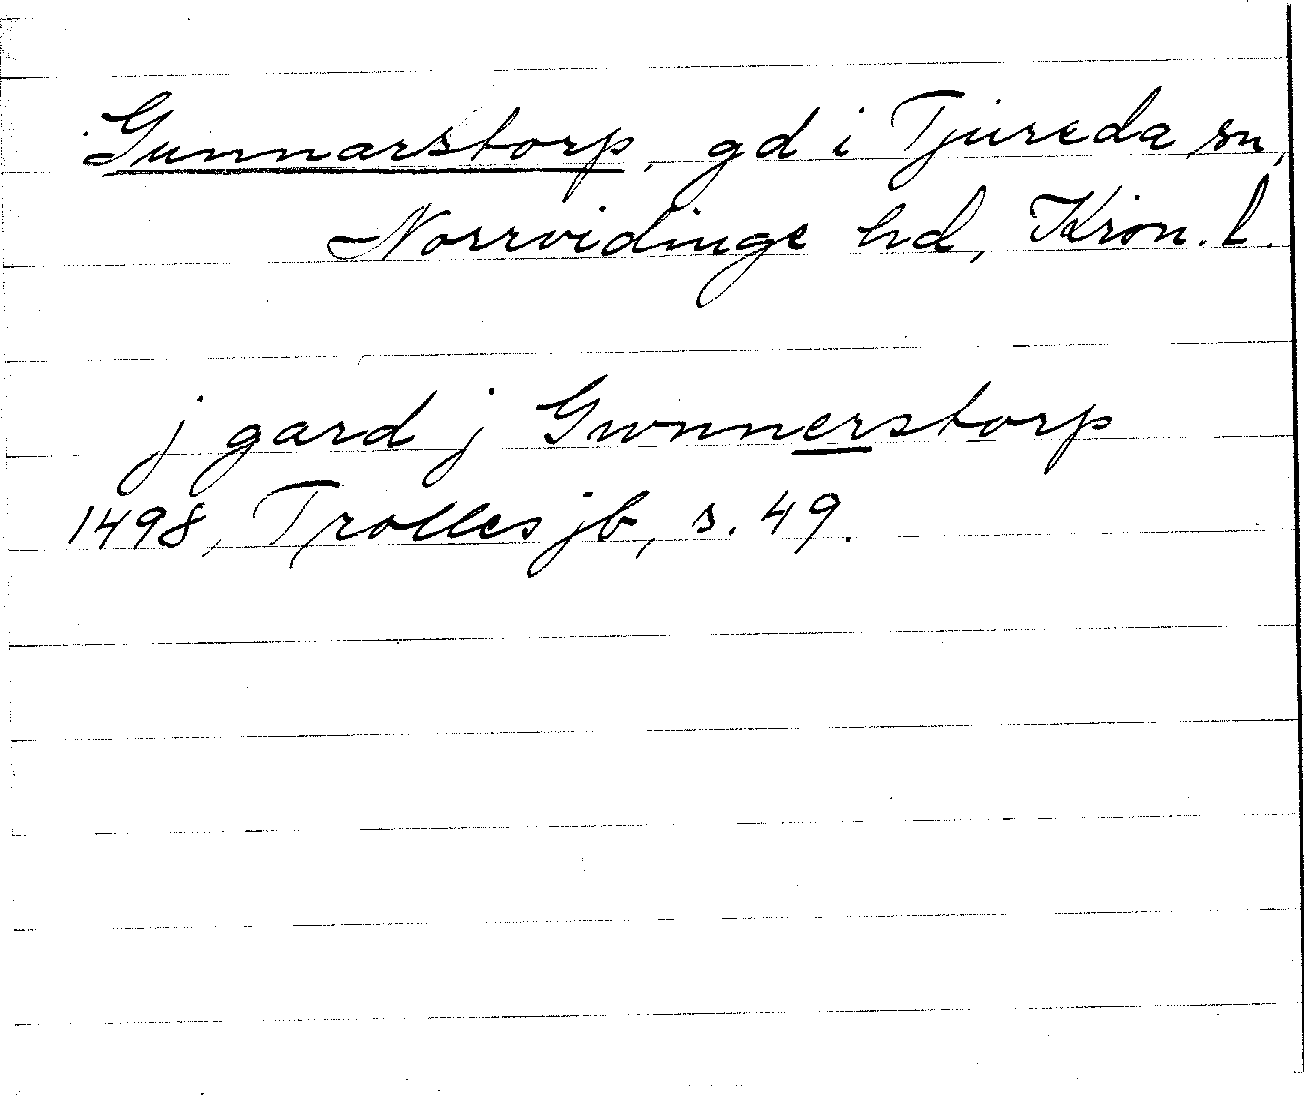 Gunnarstorp, gd i Tjureda sn,
Norrvidinge hd, Kron. l.
j gard j Gwnnerstorp
1498, Trolles jb, s. 49.